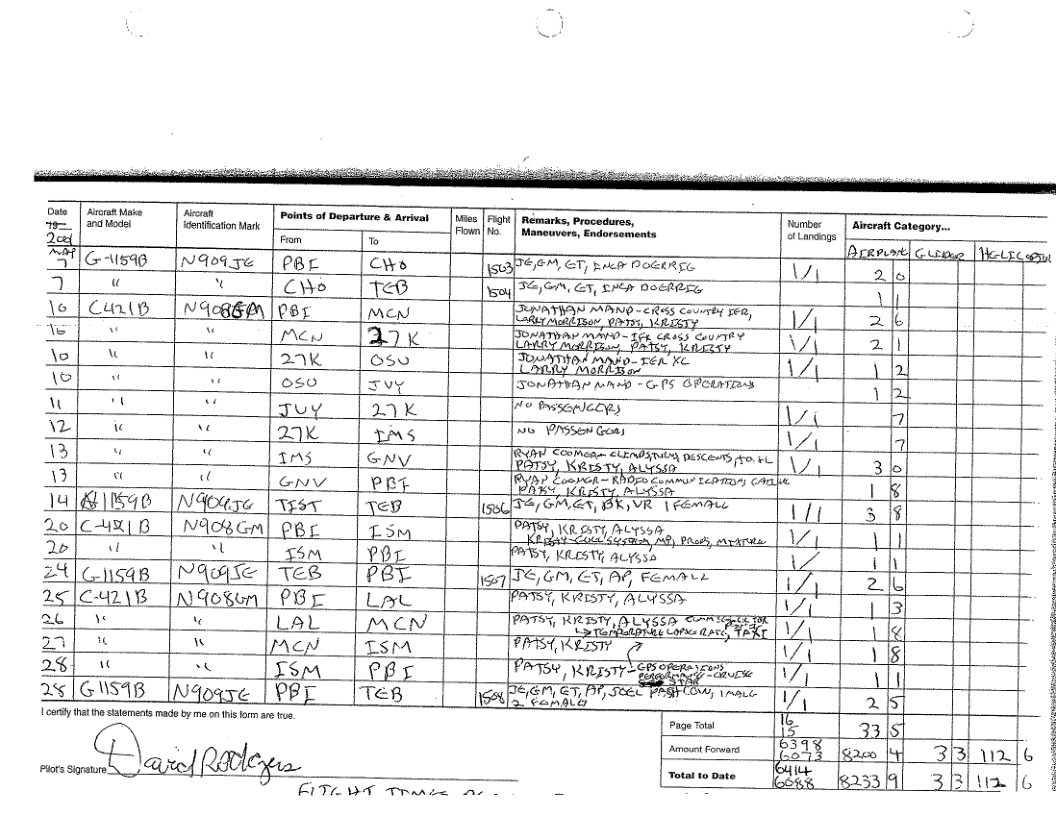 Date Aircraft Make and Model Aircraft Identification Mark Points of Departure & Arrival Miles Flown Flight No. Remarks, Procedures, Maneuvers, Endorsements Number of Landings Aircraft Category...
19 2001 From To AIRPLANE GLIDER HELICOPTER
MAY
7 G-1159B N909JE PBI CHO 1503 JE, GM, ET, INCA DOERRIG 1/1 2 0
7 " " CHO TEB 1504 JE, GM, ET, INCA DOERRIG 1 1
10 C421B N908GM PBI MCN JONATHAN MAND-CROSS COUNTRY IFR, 1/1 2 6
LARRY MORRISON, PATSY, KRISTY
10 " " MCN 27K JONATHAN MAND-IFR CROSS COUNTRY 1/1 2 1
LARRY MORRISON, PATSY, KRISTY
10 " " 27K OSU JONATHAN MAND-IFR XC 1/1 1 2
LARRY MORRISON
10 " " OSU JVY JONATHAN MAND-GPS OPERATIONS 1 2
11 " " JVY 27K NO PASSENGERS 1/1 7
12 " " 27K IMS NO PASSENGERS 1/1 7
13 " " IMS GNV RYAN COOMER-CLIMBS, TURNS, DESCENTS, 1/1 3 0
PATSY, KRISTY, ALYSSA
13 " " GNV PBI RYAN COOMER-RADIO COMMUNICATIONS 1 8
PATSY, KRISTY, ALYSSA
14 G1159B N909JE TIST TEB 1506 JE, GM, ET, BK, VR 1 FEMALE 1/1 3 8
20 C-421B N908GM PBI ISM PATSY, KRISTY, ALYSSA 1/1 1 1
MP, PROPS, MIXTURE
20 " " ISM PBI PATSY, KRISTY, ALYSSA 1/ 1 1
24 G-1159B N909JE TEB PBI 1507 JE, GM, ET, AP, FEMALE 1/1 2 6
25 C-421B N908GM PBI LAL PATSY, KRISTY, ALYSSA 1/1 1 3
26 " " LAL MCN PATSY, KRISTY, ALYSSA 1/1 1 8
TEMPERATURE LAPSE RATE, TAXI
27 " " MCN ISM PATSY, KRISTY 1/1 1 8
28 " " ISM PBI PATSY, KRISTY-GPS OPERATIONS 1/1 1 1
PERFORMANCE-CRUISE
STAR
28 G1159B N909JE PBI TEB 1508 JE, GM, ET, AP, JOEL PASHCOW, 1 MALE 1/1 2 5
2 FEMALES
I certify that the statements made by me on this form are true.
Page Total 16 15 33 5
Amount Forward 6398 6073 8200 4 3 3 112 6
Pilot's Signature David Rodgers
Total to Date 6414 6088 8233 9 3 3 112 6
FLIGHT TIMES